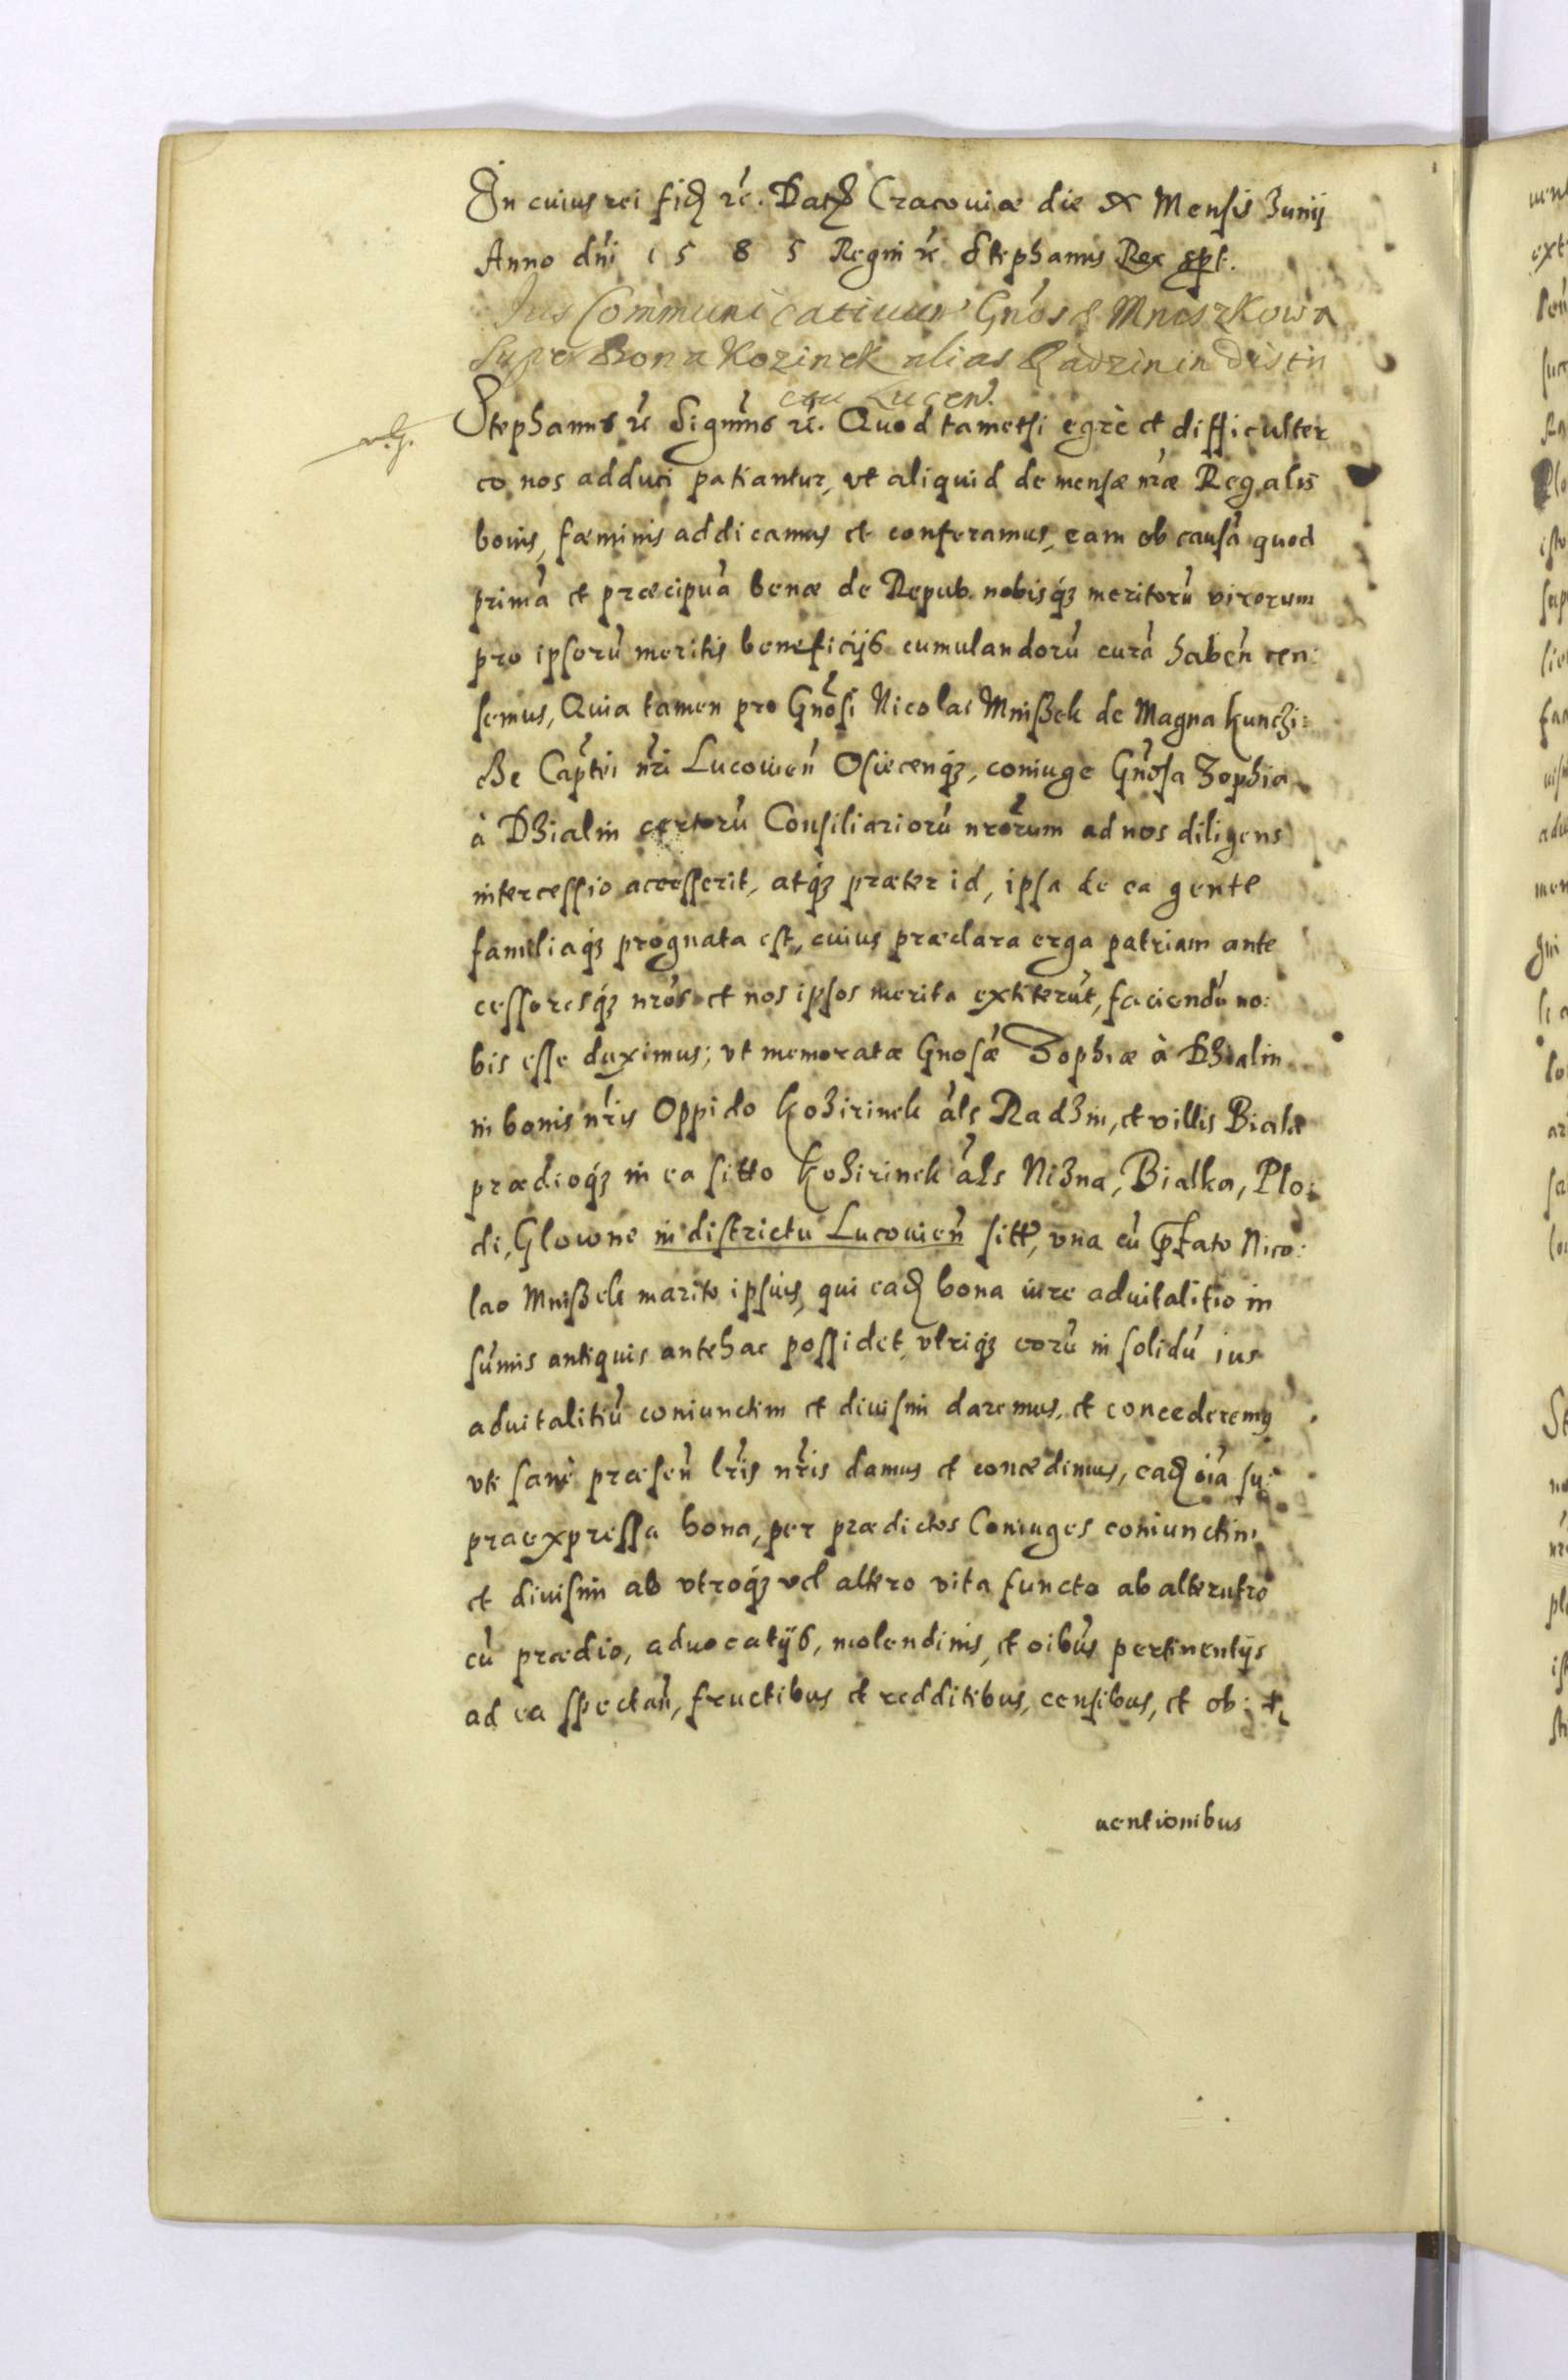 In cuius rei fidē rć. Datū Cracouiæ die X Mensis Junij
Anno dńi 1585 Regni rć Stephanus Rex spt.
Jus Communicatiuum Gńosæ Mniszkowa
Super Bona Kozinek alias Radzin in Distri
ctu Lucen.
Stephanus rć Signum̃s rć. Quod tametsi egrè et difficulter
eo nos adduci patiantur, vt aliquid de mensæ nr̃æ Regalis
bonis, fæminis addicamus et conferamus, eam ob causã quod
primã et præcipuã benæ de Repub. nobisq́ʒ meritorũ virorum
pro ipsorũ meritis beneficijs cumulandorũ curã habeñ cen:
semus, Quia tamen pro Gnõsi Nicolai Mnißek de Magna Kunczi:
cze Capt̃ei nr̃i Lucouieñ Osiecenq́ʒ, coniuge Gnõsa Zophia
à Dzialin certorũ Consiliariorũ nrõrum ad nos diligens
intercessio accesserit, atq́ʒ præter id, ipsa de ea gente
familiaq́ʒ prognata est, cuius præclara erga patriam ante
cessoresq́ʒ nrõs et nos ipsos merita extiterũt, faciendũ no:
bis esse duximus; vt memoratæ Gnosæ Zophiæ à Dzialin
in bonis nr̃is Oppido Kozirinek ãls Radzin, et villis Biala
prædioq́ʒ in ea sitto Kozirinek ãls Nizna, Bialka, Plo:
di, Glowne in districtu Lucouieñ sitt, vna cũ p̃fato Nico:
lao Mnißek marito ipsius, qui eadē bona iure aduitalitio in
sum̃is antiquis antehac possidet, vtriq́ʒ eorũ in solidũ ius
aduitalitiũ coniunctim et diuisim daremus, et concederemus
vti sane præseñ lr̃is nr̃is damus et concedimus, eadē oĩa su:
praexpressa bona, per prædictos Coniuges coniunctim
et diuisim ab vtroq́ʒ vel altero vita functo ab alterutro
cũ prædio, aduocatijs, molendinis, et oĩbus pertinentijs
ad ea spectañ, fructibus et redditibus, censibus, et ob:
uentionibus